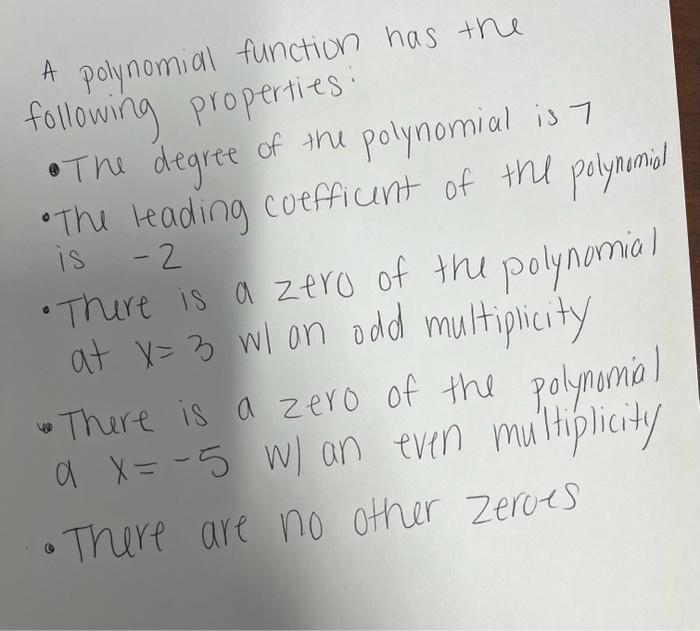 A polynomial function has the
following properties:
• The degree of the polynomial is 7
• The leading coefficient of the polynomial
is -2
• There is a zero of the polynomial
at x=3 w/ an odd multiplicity
• There is a zero of the polynomial
a x=-5 w/ an even multiplicity
• There are no other zeroes